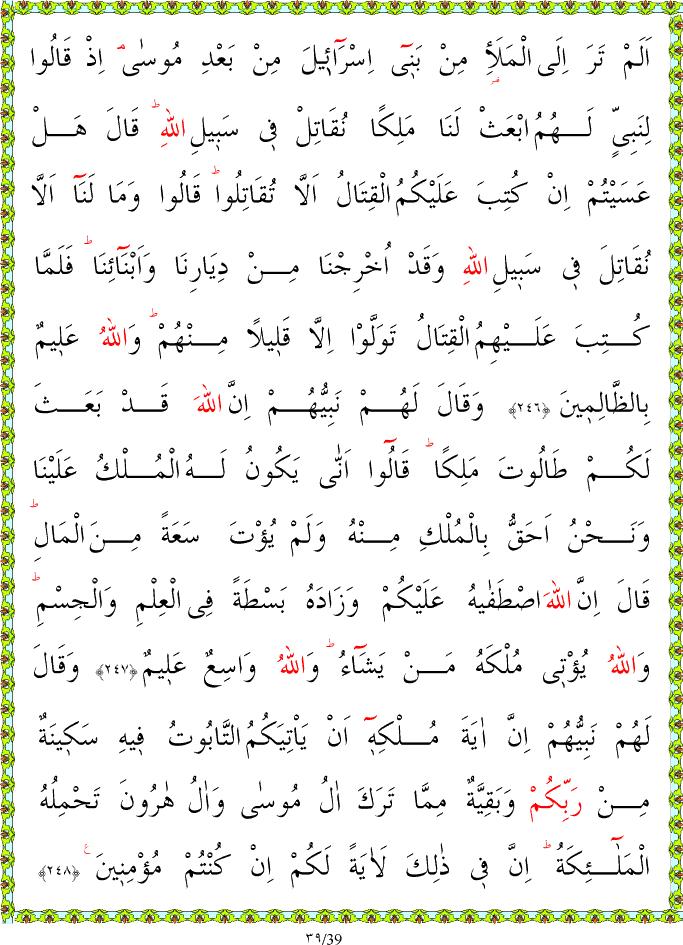 اَلَمْ تَرَ اِلَى الْمَلَأِ مِنْ بَنٖٓى اِسْرَٓائٖيلَ مِنْ بَعْدِ مُوسٰىۘ اِذْ قَالُوا
لِنَبِيٍّ لَهُمُ ابْعَثْ لَنَا مَلِكًا نُقَاتِلْ فٖى سَبٖيلِ اللّٰهِؕ قَالَ هَلْ
عَسَيْتُمْ اِنْ كُتِبَ عَلَيْكُمُ الْقِتَالُ اَلَّا تُقَاتِلُواؕ قَالُوا وَمَا لَنَٓا اَلَّا
نُقَاتِلَ فٖى سَبٖيلِ اللّٰهِ وَقَدْ اُخْرِجْنَا مِنْ دِيَارِنَا وَاَبْنَٓائِنَاؕ فَلَمَّا
كُتِبَ عَلَيْهِمُ الْقِتَالُ تَوَلَّوْا اِلَّا قَلٖيلًا مِنْهُمْؕ وَاللّٰهُ عَلٖيمٌ
بِالظَّالِمٖينَ ﴿٢٤٦﴾ وَقَالَ لَهُمْ نَبِيُّهُمْ اِنَّ اللّٰهَ قَدْ بَعَثَ
لَكُمْ طَالُوتَ مَلِكًاؕ قَالُٓوا اَنّٰى يَكُونُ لَهُ الْمُلْكُ عَلَيْنَا
وَنَحْنُ اَحَقُّ بِالْمُلْكِ مِنْهُ وَلَمْ يُؤْتَ سَعَةً مِنَ الْمَالِؕ
قَالَ اِنَّ اللّٰهَ اصْطَفٰيهُ عَلَيْكُمْ وَزَادَهُ بَسْطَةً فِى الْعِلْمِ وَالْجِسْمِؕ
وَاللّٰهُ يُؤْتٖى مُلْكَهُ مَنْ يَشَٓاءُؕ وَاللّٰهُ وَاسِعٌ عَلٖيمٌ ﴿٢٤٧﴾ وَقَالَ
لَهُمْ نَبِيُّهُمْ اِنَّ اٰيَةَ مُلْكِهٖٓ اَنْ يَاْتِيَكُمُ التَّابُوتُ فٖيهِ سَكٖينَةٌ
مِنْ رَبِّكُمْ وَبَقِيَّةٌ مِمَّا تَرَكَ اٰلُ مُوسٰى وَاٰلُ هٰرُونَ تَحْمِلُهُ
الْمَلٰٓئِكَةُؕ اِنَّ فٖى ذٰلِكَ لَاٰيَةً لَكُمْ اِنْ كُنْتُمْ مُؤْمِنٖينَࣖ ﴿٢٤٨﴾
٣٩/39